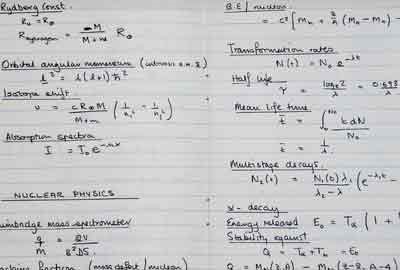 Rydberg Const.
R₀ = R∞
R_Hydrogen = M / (M + m) R∞
Orbital angular momentum (intrinsic
l² = l(l+1)ħ²
Isotope shift.
ν = cR∞M / (M+m) (1/n₁² − 1/n₂²)
Absorption spectra
I = I₀e
NUCLEAR PHYSICS
Bainbridge mass spectrometer
q/m = 2V / B²DS
fraction (mass defect / nucleon)
B.E / nucleon
= c² [Mₙ + Z/A (M_H − Mₙ) −
Transformation rates
N(t) = N₀e^−λt
Half life
τ = log_e 2 / λ = 0.693 / λ
Mean life time
t̄ = ∫₀^N₀ t dN / N₀
t̄ = 1/λ
Multistage decays.
N₂(t) = N₁(0)λ₁ / (λ₂ − λ₁) (e^−λ₁t −
α − decay
Energy released E₀ = Tα (1 +
Stability against
Q = Tα + T_b = E₀
Q = M_N(Z,A) − M_N(Z−2, A−4)